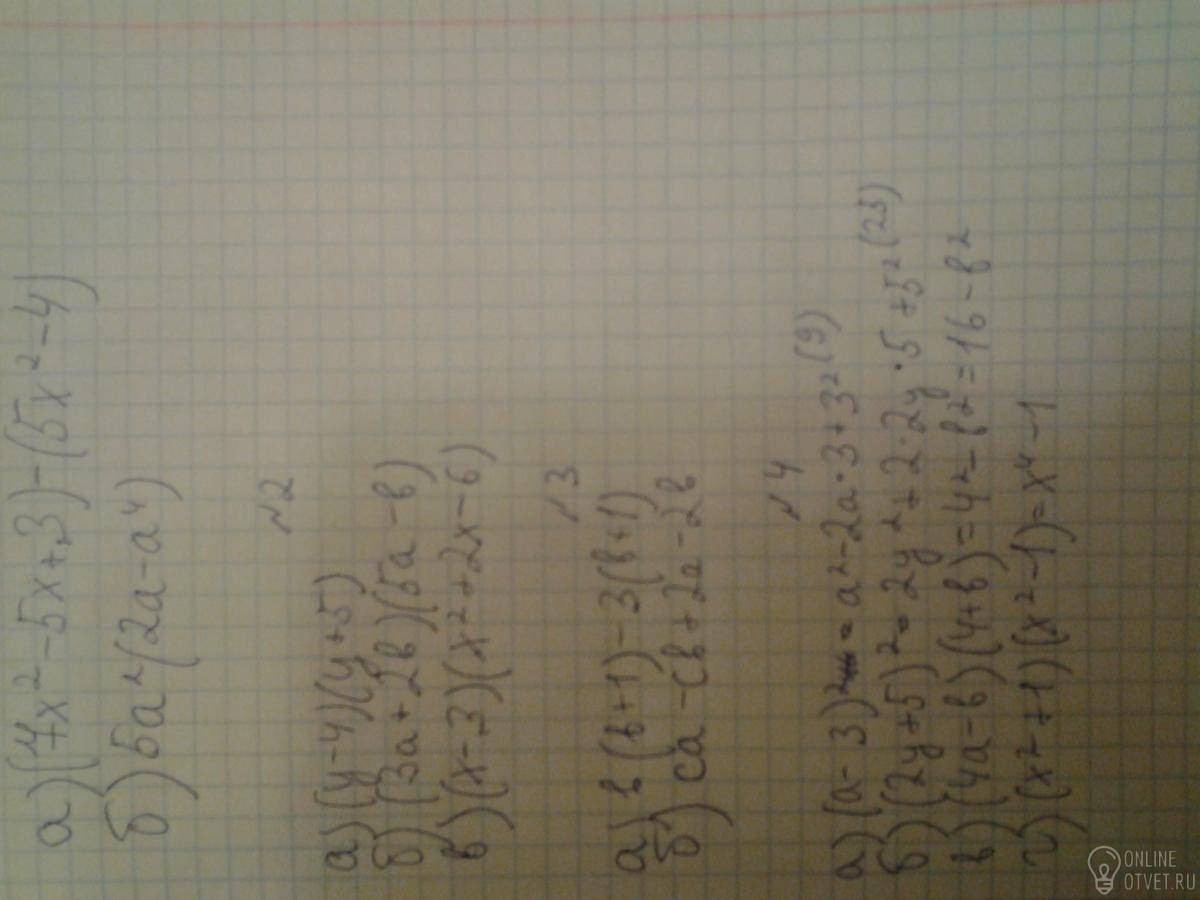 а) (7x² - 5x + 3) - (5x² - 4)
б) 5a²(2a - a⁴)
№2
а) (y - 4)(y + 5)
б) (3a + 2b)(5a - b)
в) (x - 3)(x² + 2x - 6)
№3
а) b(b + 1) - 3(b + 1)
б) ca - cb + 2a - 2b
№4
а) (a - 3)² = a² - 2a · 3 + 3² (9)
б) (2y + 5)² = 2y² + 2 · 2y · 5 + 5² (25)
в) (4a - b)(4 + b) = 4² - b² = 16 - b²
г) (x² + 1)(x² - 1) = x⁴ - 1
ONLINE
OTVET.RU